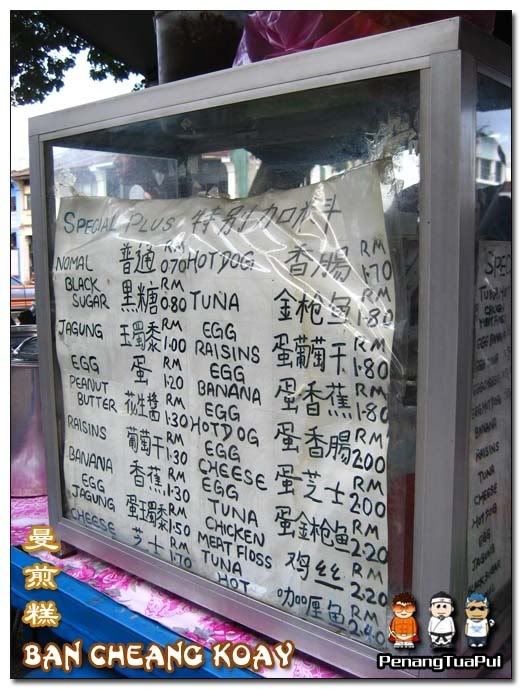 SPECIAL PLUS 特別加口料
NOMAL 普通 RM 0.70
BLACK SUGAR 黑糖 RM 0.80
JAGUNG 玉蜀黍 RM 1.00
EGG 蛋 RM 1.20
PEANUT BUTTER 花生醬 RM 1.30
RAISINS 葡萄干 RM 1.30
BANANA 香蕉 RM 1.30
EGG JAGUNG 蛋玉蜀黍 RM 1.50
CHEESE 芝士 RM 1.70
HOT DOG 香腸 RM 1.70
TUNA 金枪鱼 RM 1.80
EGG RAISINS 蛋葡萄干 RM 1.80
EGG BANANA 蛋香蕉 RM 1.80
EGG HOTDOG 蛋香腸 RM 2.00
EGG CHEESE 蛋芝士 RM 2.00
EGG TUNA 蛋金枪鱼 RM 2.20
CHICKEN MEAT FLOSS 鸡丝 RM 2.20
TUNA HOT 咖喱鱼 RM 2.40
曼煎糕
BAN CHEANG KOAY
PenangTuaPui